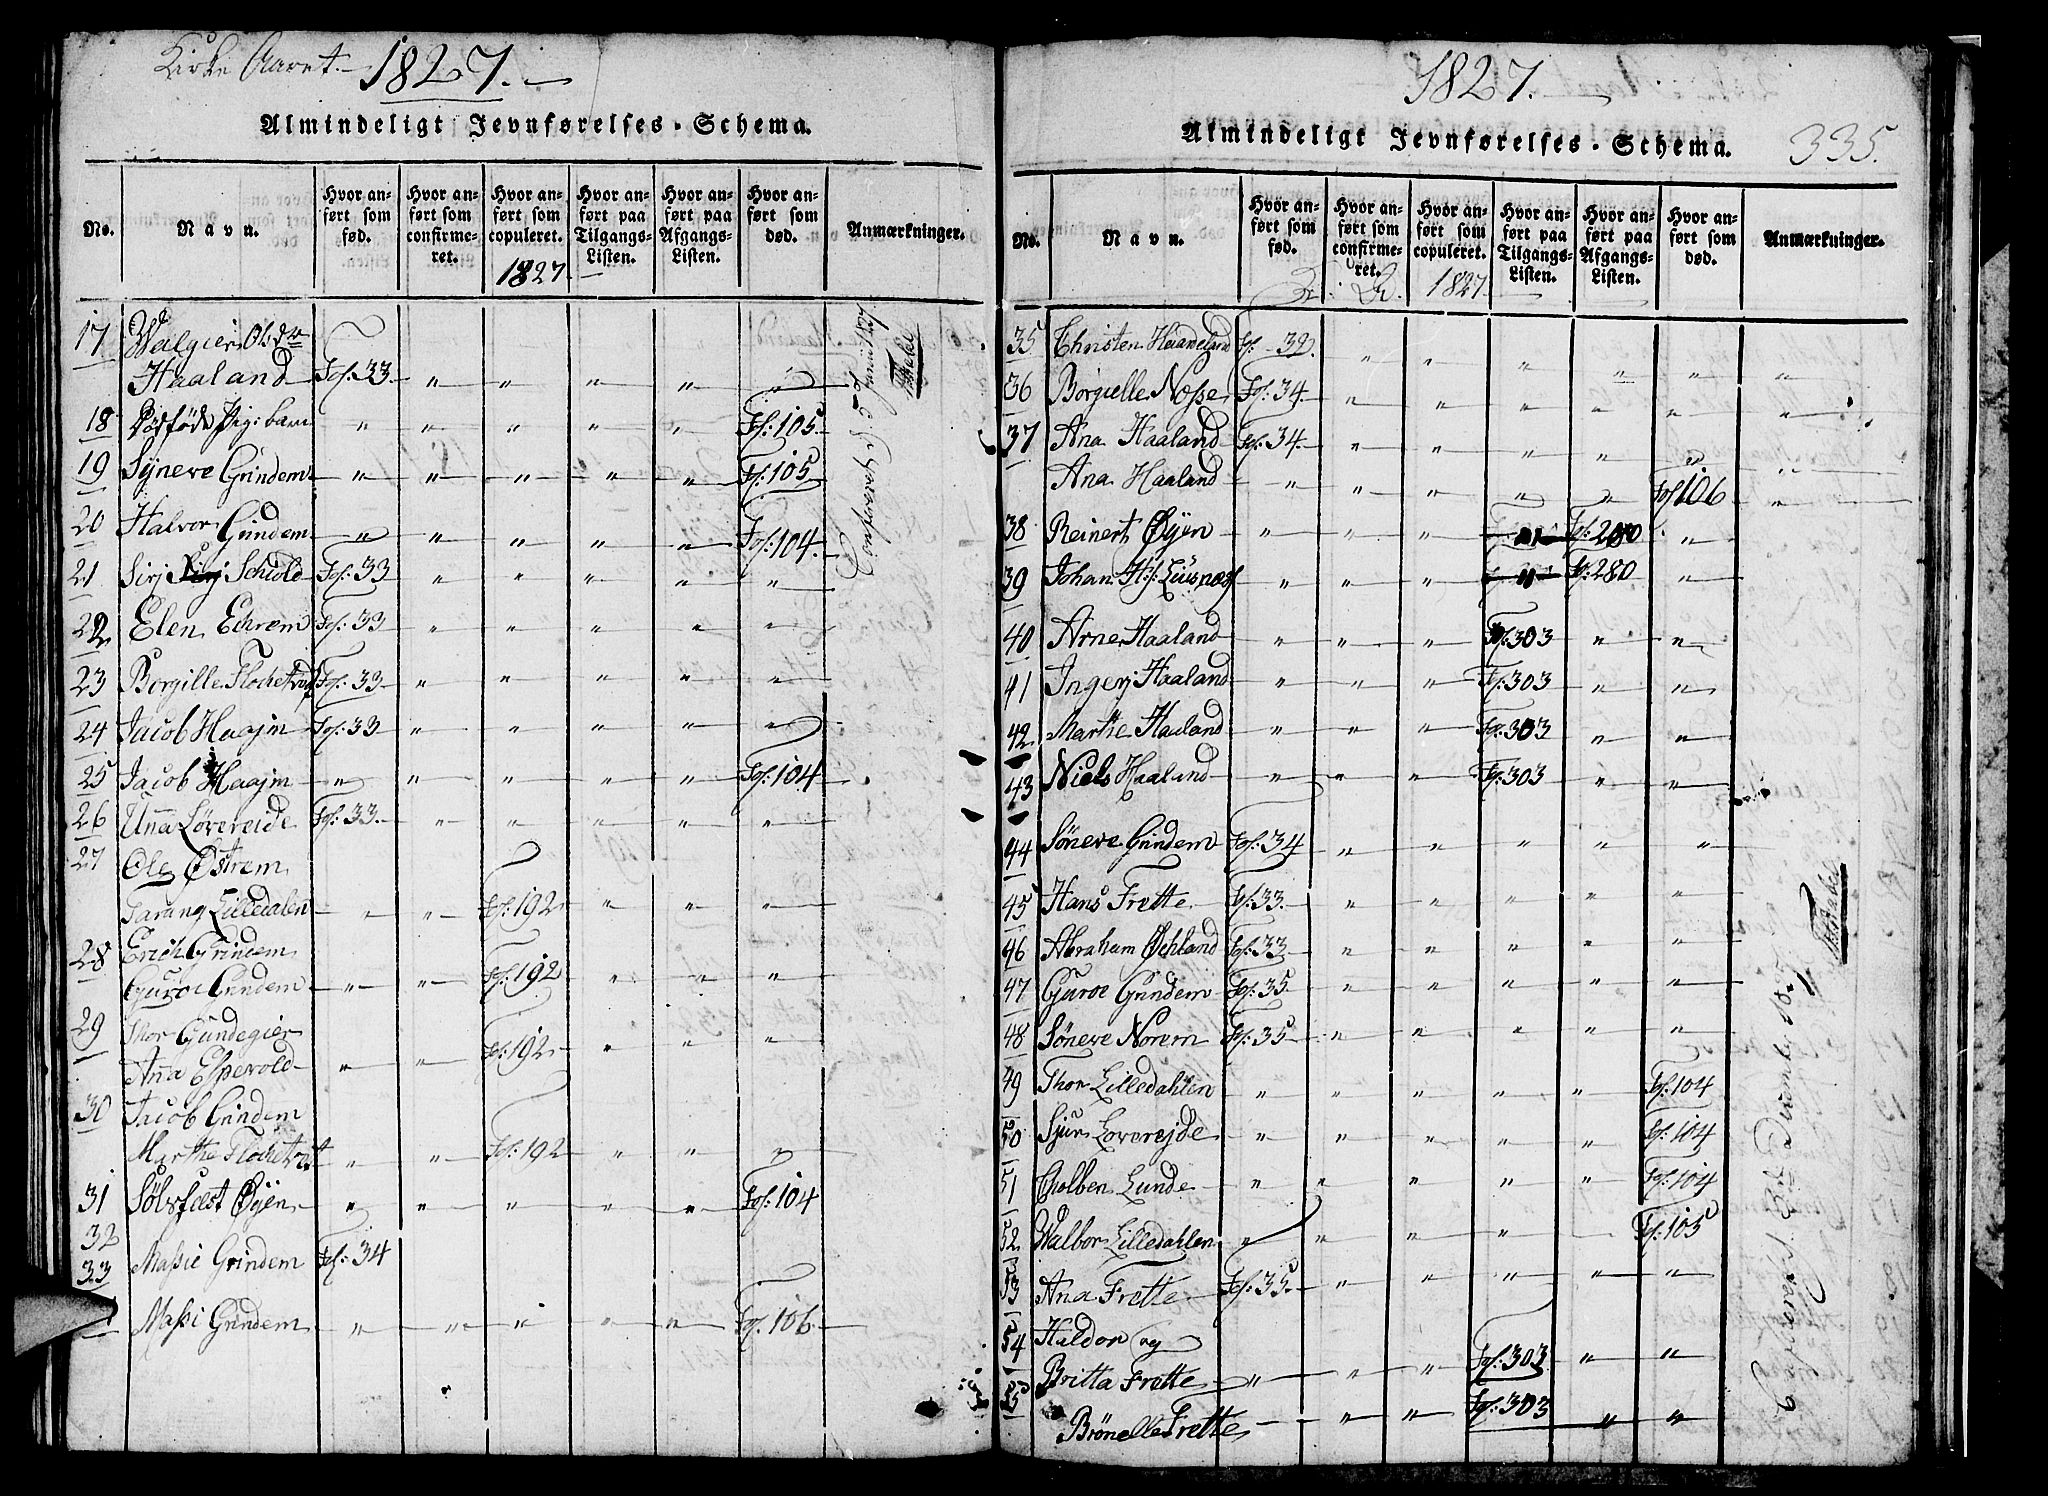 Kirke Aaret 1827.
Almindeligt Jevnførelses-Schema.
No. Navn. Hvor anført som fød. Hvor anført som confirmeret. Hvor anført som copuleret. Hvor anført paa Tilgangs-Listen. Hvor anført paa Afgangs-Listen. Hvor anført som død. Anmærkninger.
1827.
17 Walgier Olsdr
Haaland Fol: 33 " " " " "
18 Dødfødt Pigebarn " " " " " Fol: 105
19 Syneve Grindem " " " " " Fol: 105
20 Halvor Grindem " " " " " Fol: 104
21 Sirj Schiold Fol: 33 " " " " "
22 Elen Echrem Fol: 33 " " " " "
23 Borgille Flochetvet Fol: 33 " " " " "
24 Jacob Haajm Fol: 33 " " " " "
25 Jacob Haajm " " " " " Fol: 104
26 Unna Løvereide Fol: 33 " " " " "
27 Ole Østrem
Tarang Lilledalen " " Fol: 192 " " "
28 Erich Grindem
Guroe Grindem " " Fol: 192 " " "
29 Thor Gundegier
Anna Espevold " " Fol: 192 " " "
30 Jacob Grindem
Marthe Flochetvet " " Fol: 192 " " "
31 Sølvfæst Øyen " " " " " Fol: 104
32
33 Massie Grindem Fol: 34
Massi Grindem " " " " " Fol: 106
Confereret d. Junii 1827
1827.
Almindeligt Jevnførelses-Schema. 335.
No. Navn. Hvor anført som fød. Hvor anført som confirmeret. Hvor anført som copuleret. Hvor anført paa Tilgangs-Listen. Hvor anført paa Afgangs-Listen. Hvor anført som død. Anmærkninger.
1827
35 Christen Haaveland Fol: 39 " " " " " "
36 Børgielle Nosse Fol: 34 " " " " " "
37 Ana Haaland Fol: 34 " " " " " "
Ana Haaland " " " " " Fol 106 "
38 Reinert Øyen " " " Fol: 280 "
39 Johan H: Lüsnæs " " " Fol: 280 "
40 Arne Haaland " " " Fol: 303 " "
41 Ingerj Haaland " " " Fol: 303 " "
42 Marthe Haaland " " " Fol: 303 " "
43 Niels Haaland " " " Fol: 303 " "
44 Søneve Grindem Fol: 34 " " " " "
45 Hans Frette Fol: 33 " " " " "
46 Abraham Øchland Fol: 33 " " " " "
47 Guroe Grindem Fol: 35 " " " " "
48 Søneve Norem Fol: 35 " " " " "
49 Thor Lilledahlen " " " " " Fol: 104
50 Sjur Loverejde " " " " " Fol: 104
51 Cholben Lunde " " " " " Fol: 104
52 Walbor Lilledahlen " " " " Fol: 105
53 Ana Frette Fol: 35 " " " " "
54 Haldor og
Britta Frette " " " Fol: 303 " "
55 Brönelle Frette " " Fol: 303 " "
Confereret